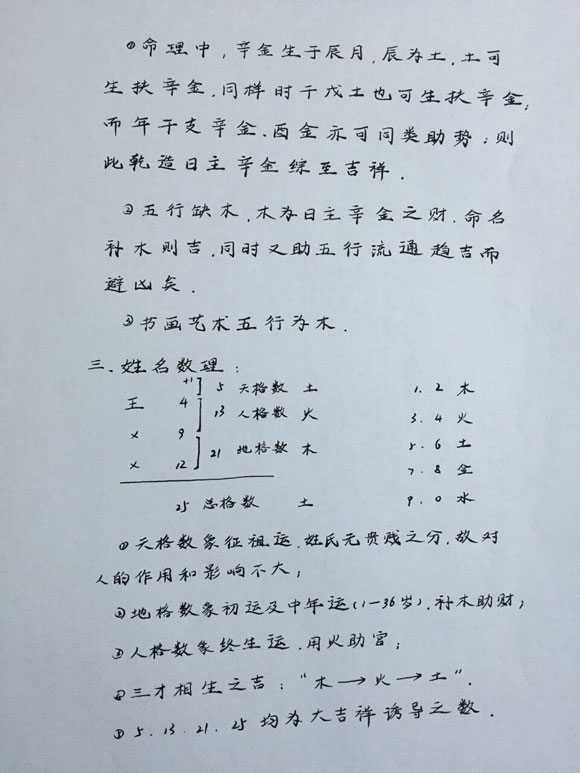 ①命理中，辛金生于辰月，辰为土，土可
生扶辛金，同样时干戊土也可生扶辛金，
而年干支辛金、酉金亦可同类助势；则
此乾造日主辛金综至吉祥．
②五行缺木，木为日主辛金之财，命名
补木则吉，同时又助五行流通趋吉而
避凶矣．
③书画艺术五行为木．
三、姓名数理：
+1 5 天格数 土 1. 2 木
王 4 13 人格数 火 3. 4 火
× 9 21 地格数 木 5. 6 土
× 12 7. 8 金
25 总格数 土 9. 0 水
①天格数象征祖运，姓氏无贵贱之分，故对
人的作用和影响不大；
②地格数象初运及中年运(1—36岁)，补木助财；
③人格数象终生运，用火助官；
④三才相生之吉："木→火→土"．
⑤5．13．21．25 均为大吉祥诱导之数．